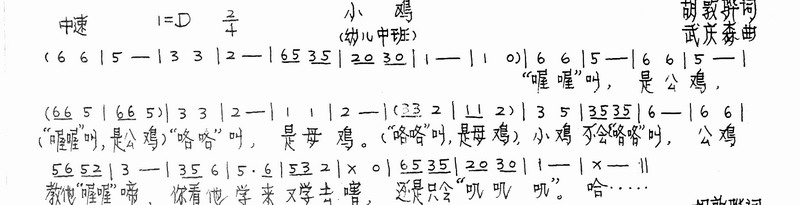 小鸡
胡敦骅词
中速 1=D 2/4 (幼儿中班) 武庆森曲
(6 6 | 5 — | 3 3 | 2 — | 65 35 | 20 30 | 1 — | 1 0) | 6 6 | 5 — | 6 6 | 5 — |
“喔喔”叫, 是公鸡,
(66 5 | 66 5) | 3 3 | 2 — | 1 1 | 2 — | (33 2 | 11 2) | 3 5 | 35 35 | 6 — | 6 6 |
(“喔喔”叫,是公鸡)“咯咯”叫, 是母鸡。(“咯咯”叫,是母鸡) 小鸡不会“咯咯”叫, 公鸡
56 52 | 3 — | 35 6 | 5·6 | 53 2 | x 0 | 65 35 | 20 30 | 1 — | x — ‖
教他“喔喔”啼, 你看他学来又学去嘻, 还是只会“叽叽叽”。哈……